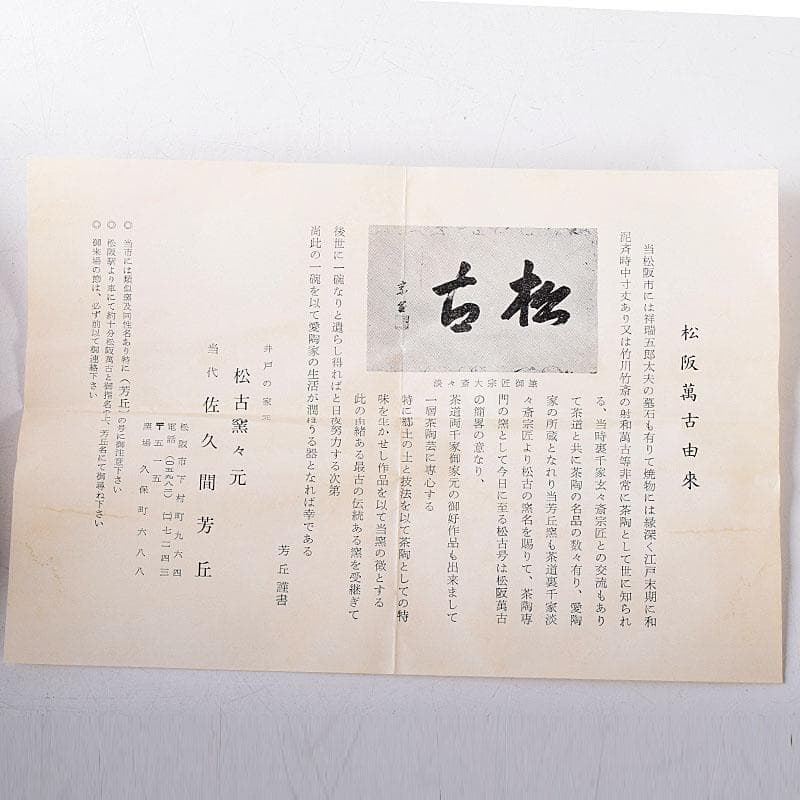 松阪萬古由來
当松阪市には祥瑞五郎太夫の墓石も有りて焼物には縁深く江戸末期に和
泥斉時中寸丈あり又は竹川竹斎の射和萬古等非常に茶陶として世に知られ
る、当時裏千家玄々斎宗匠との交流もあり
て茶道と共に茶陶の名品の数々有り、愛陶
家の所蔵となれり当芳丘窯も茶道裏千家淡
々斎宗匠より松古の窯名を賜りて、茶陶専
門の窯として今日に至る松古号は松阪萬古
の簡畧の意なり、
茶道両千家御家元の御好作品も出来まして
一層茶陶芸に専心する
松古
淡々斎大宗匠御筆
特に郷土の土と技法を以て茶陶としての特
味を生かせし作品を以て当窯の徴とする
此の由緒ある最古の伝統ある窯を受継ぎて
後世に一碗なりと遺らし得ればと日夜努力する次第
尚此の一碗を以て愛陶家の生活が潤ほうる器となれば幸である
芳丘謹書
井戸の家元
松古窯々元
当代 佐久間芳丘
松阪市下村町九六四
電話(〇五九八二)(二)七二四三
〒五一五
窯場 久保町六八八
◎ 当市には類似窯及同性名あり特に(芳丘)の号に御注意下さい
◎ 松阪駅より車にて約十分松阪萬古と御指名の上、芳丘名にて御尋ね下さい
◎ 御来場の節は、必ず前以て御連絡下さい